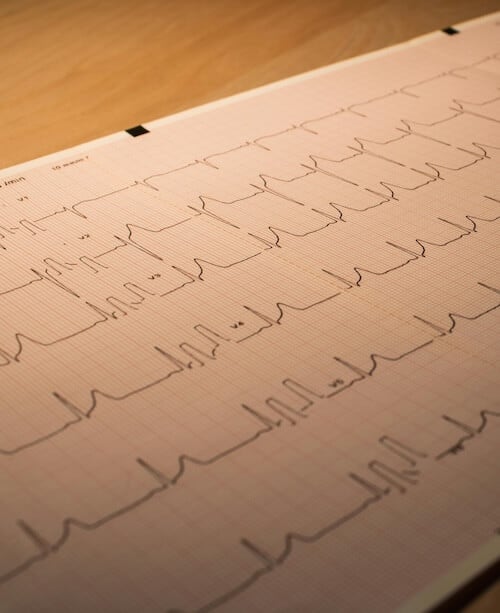 /min
10 mm/mV
V1
V2
V3
V4
V5